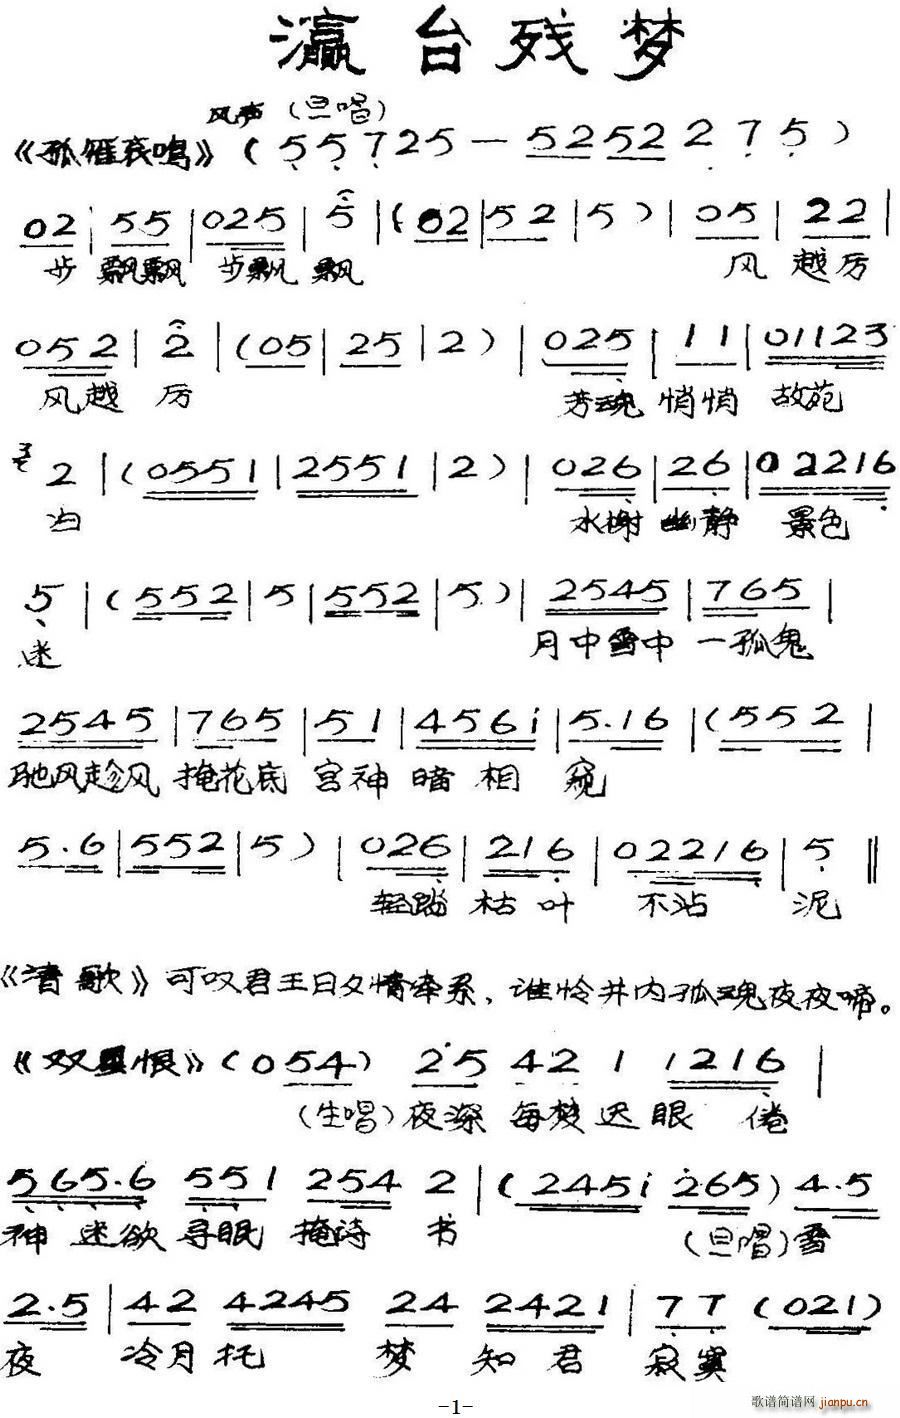 瀛台残梦
风声 (旦唱)
《孤雁哀鸣》( 5 5 7 2 5 — 5 2 5 2 2 7 5 )
0 2 | 5 5 | 0 2 5 | 5 | ( 0 2 | 5 2 | 5 ) | 0 5 | 2 2 |
步 飘飘 步飘 飘 风 越厉
0 5 2 | 2 | ( 0 5 | 2 5 | 2 ) | 0 2 5 | 1 1 | 0 1 1 2 3
风越 厉 芳魂 悄悄 故苑
2 | ( 0 5 5 1 | 2 5 5 1 | 2 ) | 0 2 6 | 2 6 | 0 2 2 1 6
归 水榭 幽静 景色
5 | ( 5 5 2 | 5 | 5 5 2 | 5 ) | 2 5 4 5 | 7 6 5 |
迷 月中雪中 一孤鬼
2 5 4 5 | 7 6 5 | 5 1 | 4 5 6 i | 5 . 1 6 | ( 5 5 2 |
驰风趁风 掩花底 宫神 暗 相 窥
5 . 6 | 5 5 2 | 5 ) | 0 2 6 | 2 1 6 | 0 2 2 1 6 | 5 ‖
轻踏 枯 叶 不沾 泥
《清歌》可叹君王日夕情牵系，谁怜井内孤魂夜夜啼。
《双星恨》( 0 5 4 ) 2 5 4 2 1 1 2 1 6 |
(生唱)夜深 每梦 迟 眼 倦
5 6 5 . 6 5 5 1 2 5 4 2 | ( 2 4 5 i 2 6 5 ) 4 . 5
神 迷欲 寻眠 掩诗 书 (旦唱)雪
2 . 5 | 4 2 4 2 4 5 2 4 2 4 2 1 | 7 7 ( 0 2 1 )
夜 冷月托 梦 知 君 寂寞
-1-
歌谱简谱网 jianpu.cn